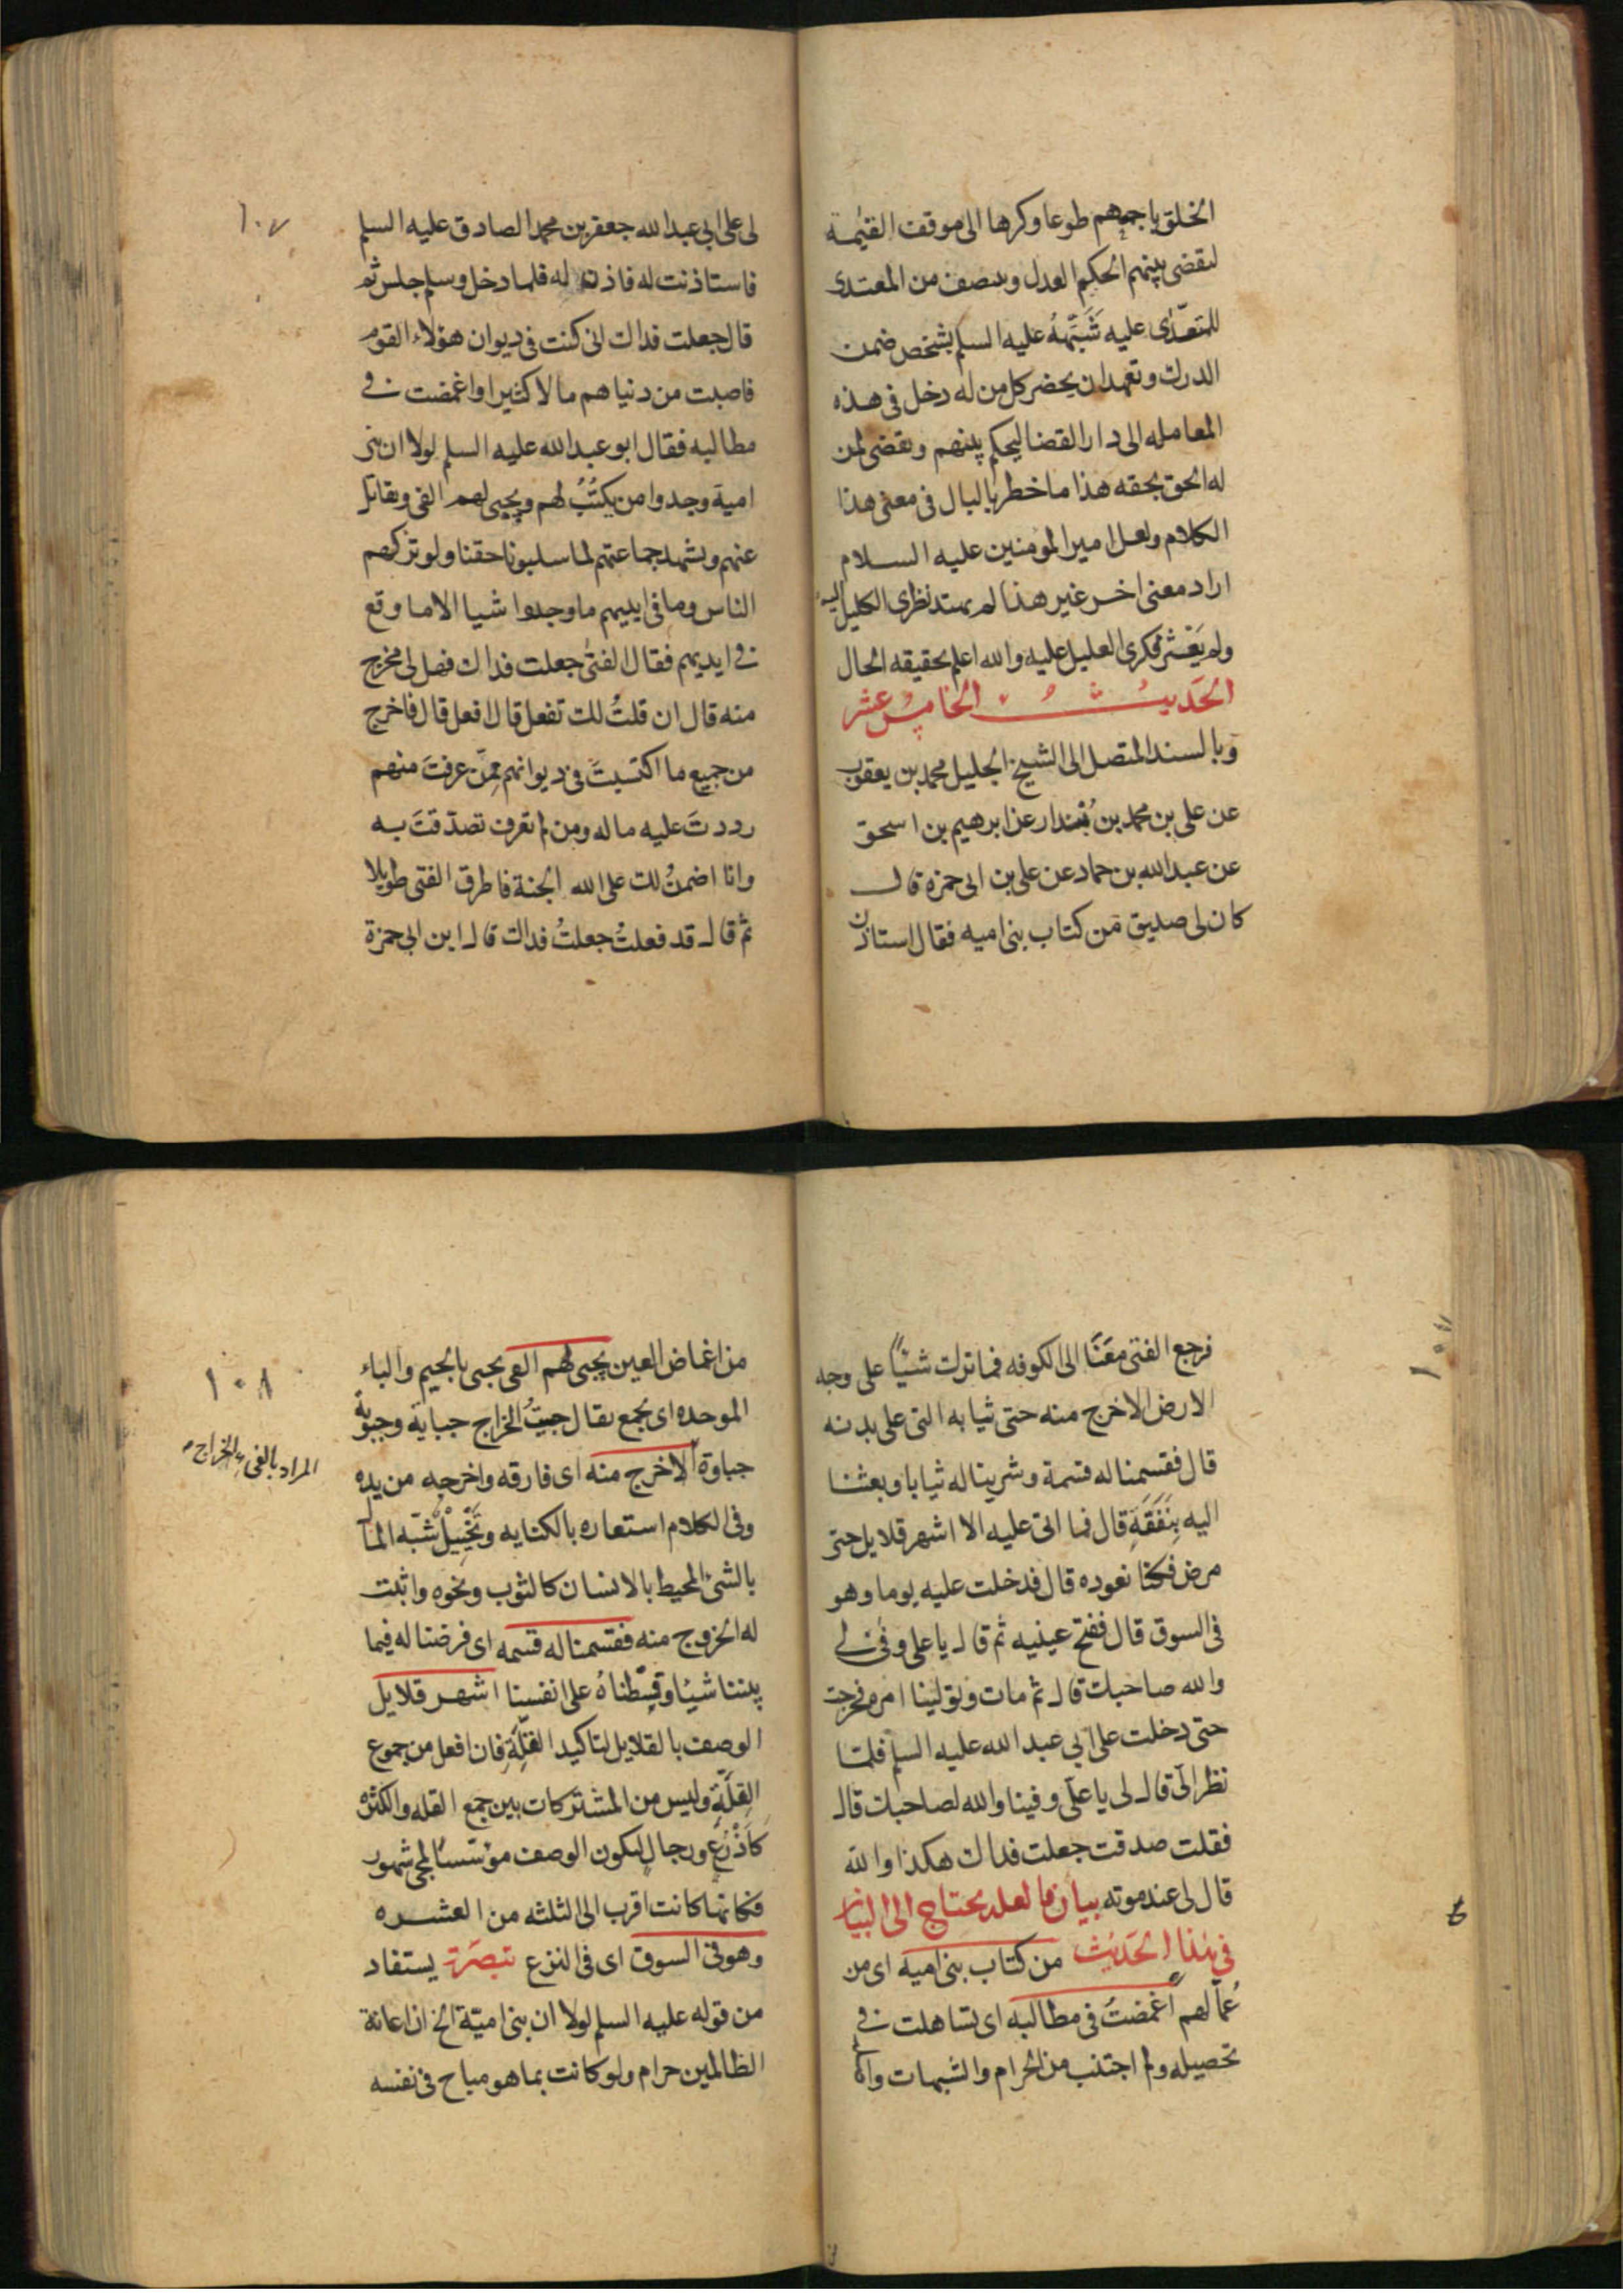 الخلق باجمهم طوعا وكرها الى موقف القيمة
لنقضى بينهم الحكم العدل وينصف من المعتدى
للمتعدى عليه شبهه عليه السلم بشخص ضمن
الدرك وتعهد ان يحضر كل من له دخل فى هذه
المعامله الى دار القضا ليحكم بينهم ويقضى لمن
له الحق بحقه هذا ما خطر بالبال فى معنى هذا
الكلام ولعل امير المؤمنين عليه السلام
اراد معنى اخر غير هذا لم يهتد نظرى الكليل اليه
ولم يعثر فكرى العليل عليه والله اعلم بحقيقه الحال
الحديث الخامس عشر
وبالسند المتصل الى الشيخ الجليل محمد بن يعقوب
عن على بن محمد بن بُندار عن ابرهيم بن اسحق
عن عبد الله بن حماد عن على بن ابى حمزه قال
كان لى صديق من كتاب بنى اميه فقال استاذن
١٠٧
لى على ابى عبد الله جعفر بن محمد الصادق عليه السلم
فاستاذنت له فاذن له فلما دخل وسلم جلس ثم
قال جعلت فداك انى كنت فى ديوان هؤلاء القوم
فاصبت من دنياهم مالا كثيرا واغمضت فى
مطالبه فقال ابو عبد الله عليه السلم لولا ان بنى
امية وجدوا من يكتُبُ لهم ويجبى لهم الفى ويقاتل
عنهم ويشهد جماعتهم لما سلبونا حقنا ولو تركهم
الناس وما فى ايديهم ما وجدوا شيا الا ما وقع
فى ايديهم فقال الفتى جعلت فداك فهل لى مخرج
منه قال ان قلتُ لك تفعل قال افعل قال فاخرج
من جميع ما اكتسبتَ فى ديوانهم فمن عرفتَ منهم
رددتَ عليه ماله ومن لم تعرف تصدقتَ به
وانا اضمنُ لك على الله الجنة فاطرق الفتى طويلا
ثم قال قد فعلتُ جعلتُ فداك قال ابن ابى حمزة
فرجع الفتى معَنَا الى الكوفه فما ترك شيئًا على وجه
الارض الا خرج منه حتى ثيابه التى على بدنه
قال فقسمنا له قسمة وشرينا له ثيابا وبعثنا
اليه بِنَفَقَةٍ قال فما اتى عليه الا اشهر قلايل حتى
مرض فكنا نعوده قال فدخلت عليه يوما وهو
فى السوق قال ففتح عينيه ثم قال يا على وفى لى
والله صاحبك قال ثم مات وتولينا امره فخرجت
حتى دخلت على ابى عبد الله عليه السلم فلما
نظر الىّ قال لى يا على وفينا والله لصاحبك قال
فقلت صدقت جعلت فداك هكذا والله
قال لى عند موته بيان ما لعله يحتاج الى البيان
فى هذا الحديث من كتاب بنى اميه اى من
عُمالهم اغمضتُ فى مطالبه اى تساهلت فى
تحصيله ولم اجتنب من الحرام والشبهات واصله
١٠٨
من اغماض العين يجبى لهم الفى يجبى بالجيم والباء
الموحده اى يجمع يقال جبيتُ الخراج جباية وجبوته
جباوة الا خرج منه اى فارقه واخرجه من يده
وفى الكلام استعاره بالكنايه وتَخْيِيلٌ شبّه المال
بالشئ المحيط بالانسان كالثوب ونحوه واثبت
له الخروج منه فقسمنا له قسمه اى فرضنا له فيما
بيننا شيئا وقسّطناهُ على انفسنا اشهر قلايل
الوصف بالقلايل لتاكيد القلّة فان افعل من جموع
القلّةِ وليس من المشتركات بين جمع القله والكثره
كَأَذْرُعٍ ورجالٍ ليكون الوصف مؤسسًا لمجئ شهور
فكانها كانت اقرب الى الثلثه من العشره
وهو فى السوق اى فى النزع تبصرة يستفاد
من قوله عليه السلم لولا ان بنى اميّة الخ ان اعانة
الظالمين حرام ولو كانت بما هو مباح فى نفسه
المراد بالفئ الخراج